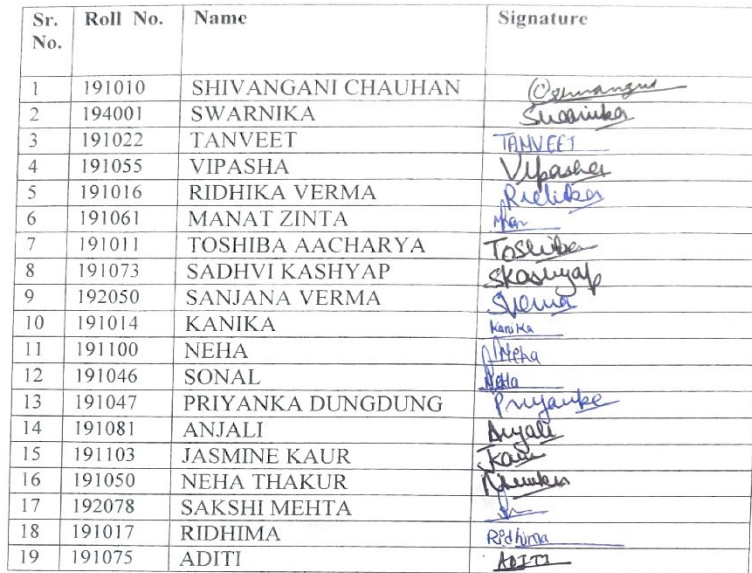 Sr. No. Roll No. Name Signature
1 191010 SHIVANGANI CHAUHAN
2 194001 SWARNIKA Swarnika
3 191022 TANVEET TANVEET
4 191055 VIPASHA Vipasha
5 191016 RIDHIKA VERMA Ridhika
6 191061 MANAT ZINTA
7 191011 TOSHIBA AACHARYA Toshiba
8 191073 SADHVI KASHYAP SKashyap
9 192050 SANJANA VERMA SVerma
10 191014 KANIKA Kanika
11 191100 NEHA Neha
12 191046 SONAL
13 191047 PRIYANKA DUNGDUNG Priyanka
14 191081 ANJALI Anjali
15 191103 JASMINE KAUR Kaur
16 191050 NEHA THAKUR
17 192078 SAKSHI MEHTA
18 191017 RIDHIMA Ridhima
19 191075 ADITI ADITI